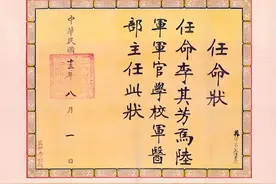 任命狀
任命李其芳為陸
軍軍官學校軍醫
部主任此狀
中華民國十五年八月一日